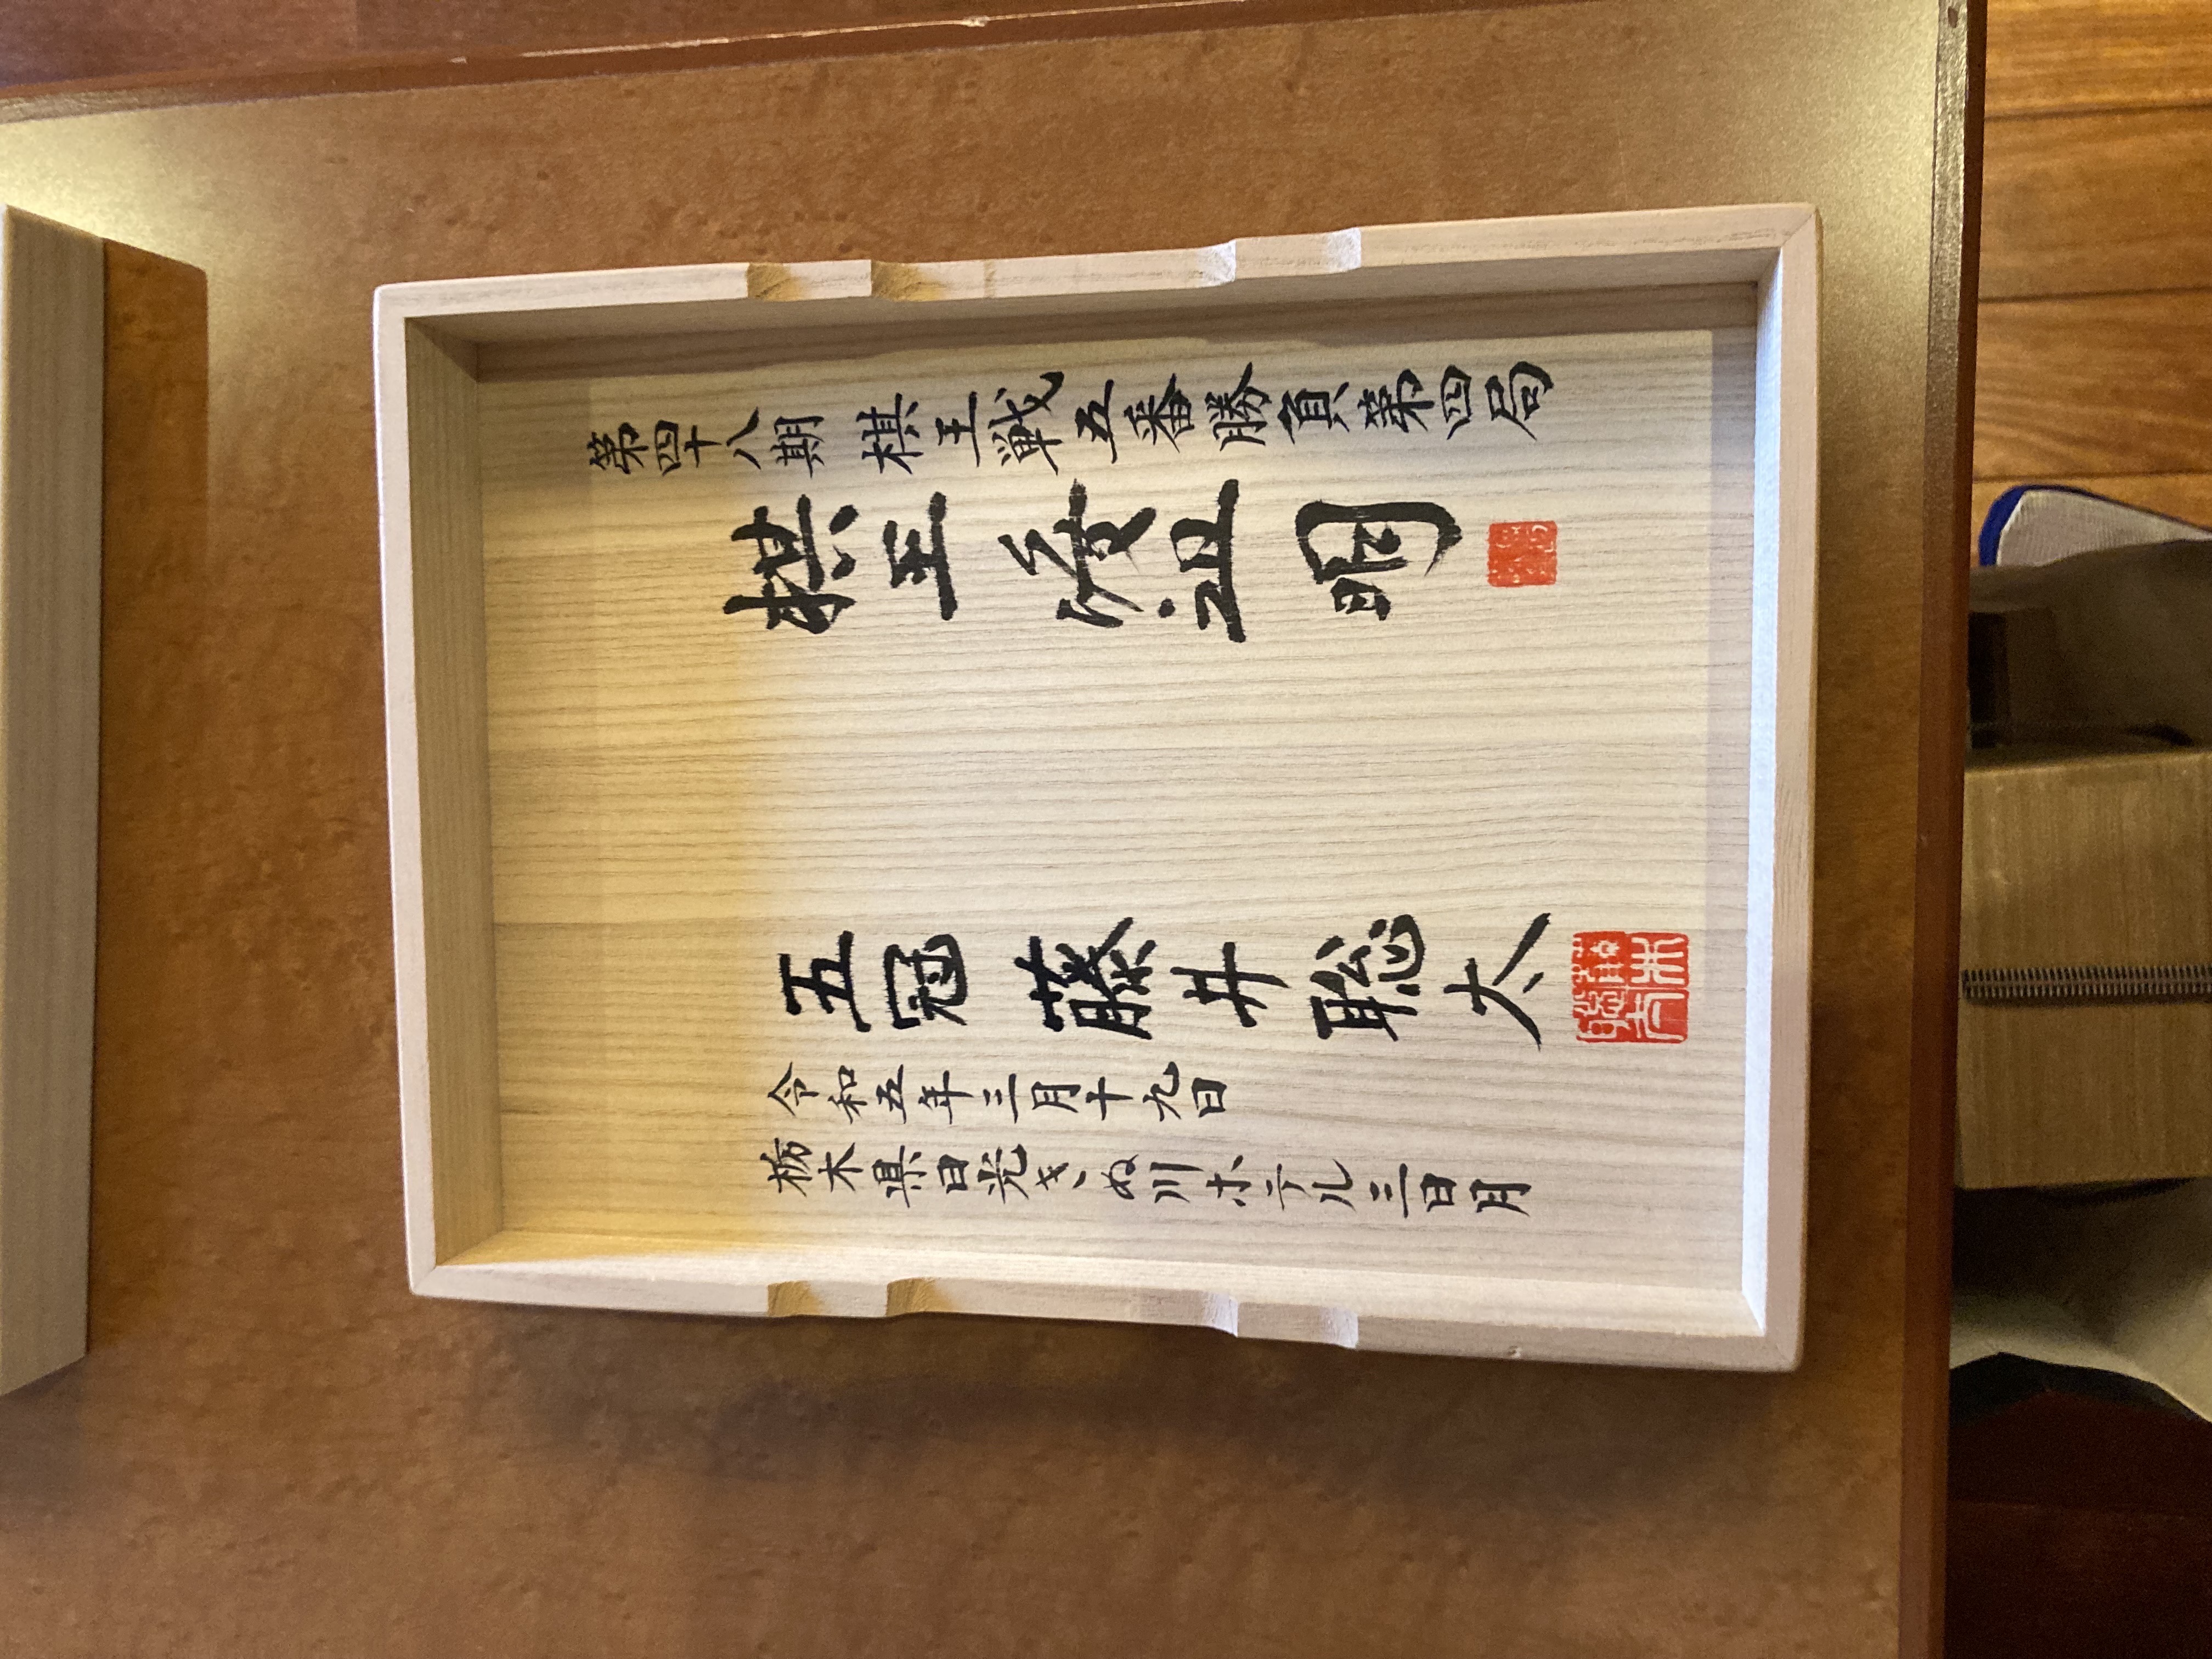 第四十八期 棋王戦五番勝負第四局
棋王 渡辺明
五冠 藤井聡太
令和五年三月十九日
栃木県日光きぬ川ホテル三日月